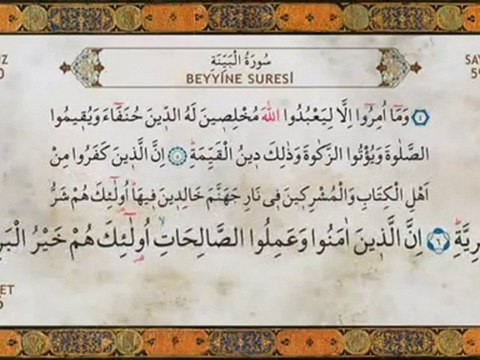 سُورَةُ الْبَيِّنَةِ
BEYYİNE SURESİ
﴿٤﴾ وَمَٓا اُمِرُٓوا اِلَّا لِيَعْبُدُوا اللّٰهَ مُخْلِص۪ينَ لَهُ الدّ۪ينَ حُنَفَٓاءَ وَيُق۪يمُوا
الصَّلٰوةَ وَيُؤْتُوا الزَّكٰوةَ وَذٰلِكَ د۪ينُ الْقَيِّمَةِۜ ﴿٥﴾ اِنَّ الَّذ۪ينَ كَفَرُوا مِنْ
اَهْلِ الْكِتَابِ وَالْمُشْرِك۪ينَ ف۪ي نَارِ جَهَنَّمَ خَالِد۪ينَ ف۪يهَاۜ اُو۬لٰٓئِكَ هُمْ شَرُّ
رِيَّةِۜ ﴿٦﴾ اِنَّ الَّذ۪ينَ اٰمَنُوا وَعَمِلُوا الصَّالِحَاتِۙ اُو۬لٰٓئِكَ هُمْ خَيْرُ الْبَر